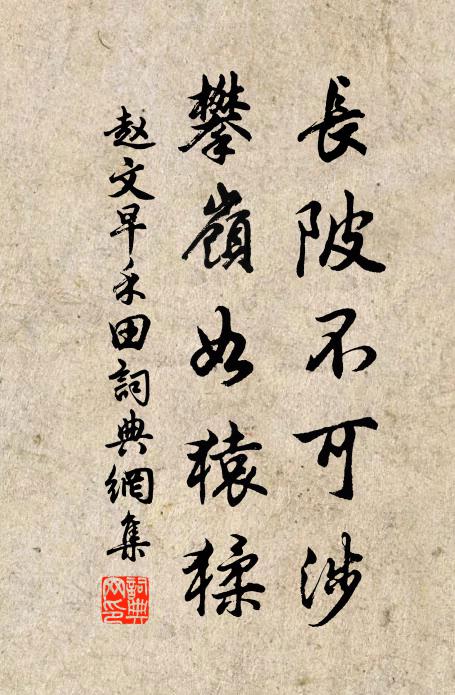 長陂不可涉
攀嶺如猿猱
赵文早禾田詞典網集
詞典
网印